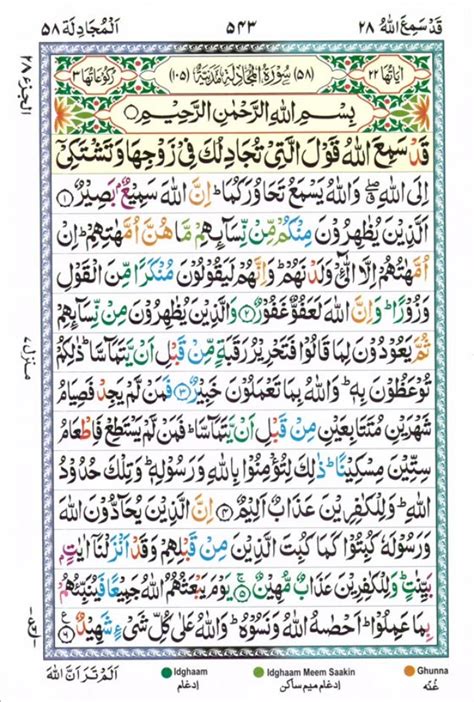 قَدْ سَمِعَ اللهُ ٢٨ ۵۴۳ اَلْمُجَادِلَة ۵٨
اٰيَاتُهَا ٢٢ (۵٨) سُوْرَةُ الْمُجَادَلَةِ مَدَنِيَّةٌ (١٠۵) رُكُوْعَاتُهَا ٣
بِسْمِ اللهِ الرَّحْمٰنِ الرَّحِيْمِ
قَدْ سَمِعَ اللهُ قَوْلَ الَّتِيْ تُجَادِلُكَ فِيْ زَوْجِهَا وَتَشْتَكِيْٓ
اِلَى اللهِ ۖ وَاللهُ يَسْمَعُ تَحَاوُرَكُمَا ؕ اِنَّ اللهَ سَمِيْعٌۢ بَصِيْرٌ ﴿١﴾
اَلَّذِيْنَ يُظٰهِرُوْنَ مِنْكُمْ مِّنْ نِّسَآئِهِمْ مَّا هُنَّ اُمَّهٰتِهِمْ ؕ اِنْ
اُمَّهٰتُهُمْ اِلَّا الّٰٓـِٔيْ وَلَدْنَهُمْ ؕ وَاِنَّهُمْ لَيَقُوْلُوْنَ مُنْكَرًا مِّنَ الْقَوْلِ
وَزُوْرًا ؕ وَاِنَّ اللهَ لَعَفُوٌّ غَفُوْرٌ ﴿٢﴾ وَالَّذِيْنَ يُظٰهِرُوْنَ مِنْ نِّسَآئِهِمْ
ثُمَّ يَعُوْدُوْنَ لِمَا قَالُوْا فَتَحْرِيْرُ رَقَبَةٍ مِّنْ قَبْلِ اَنْ يَّتَمَآسَّا ؕ ذٰلِكُمْ
تُوْعَظُوْنَ بِهٖ ؕ وَاللهُ بِمَا تَعْمَلُوْنَ خَبِيْرٌ ﴿٣﴾ فَمَنْ لَّمْ يَجِدْ فَصِيَامُ
شَهْرَيْنِ مُتَتَابِعَيْنِ مِنْ قَبْلِ اَنْ يَّتَمَآسَّا ۚ فَمَنْ لَّمْ يَسْتَطِعْ فَاِطْعَامُ
سِتِّيْنَ مِسْكِيْنًا ؕ ذٰلِكَ لِتُؤْمِنُوْا بِاللهِ وَرَسُوْلِهٖ ؕ وَتِلْكَ حُدُوْدُ
اللهِ ؕ وَلِلْكٰفِرِيْنَ عَذَابٌ اَلِيْمٌ ﴿۴﴾ اِنَّ الَّذِيْنَ يُحَآدُّوْنَ اللهَ
وَرَسُوْلَهٗ كُبِتُوْا كَمَا كُبِتَ الَّذِيْنَ مِنْ قَبْلِهِمْ وَقَدْ اَنْزَلْنَآ اٰيٰتٍۢ
بَيِّنٰتٍ ؕ وَلِلْكٰفِرِيْنَ عَذَابٌ مُّهِيْنٌ ﴿۵﴾ يَوْمَ يَبْعَثُهُمُ اللهُ جَمِيْعًا فَيُنَبِّئُهُمْ
بِمَا عَمِلُوْا ؕ اَحْصٰىهُ اللهُ وَنَسُوْهُ ؕ وَاللهُ عَلٰى كُلِّ شَيْءٍ شَهِيْدٌ ﴿٦﴾
اَلَمْ تَرَ اَنَّ اللهَ
الجزء ٢٨
منزل ٧
Idghaam
اِدغام
Idghaam Meem Saakin
اِدغام میم ساکن
Ghunna
غُنّه